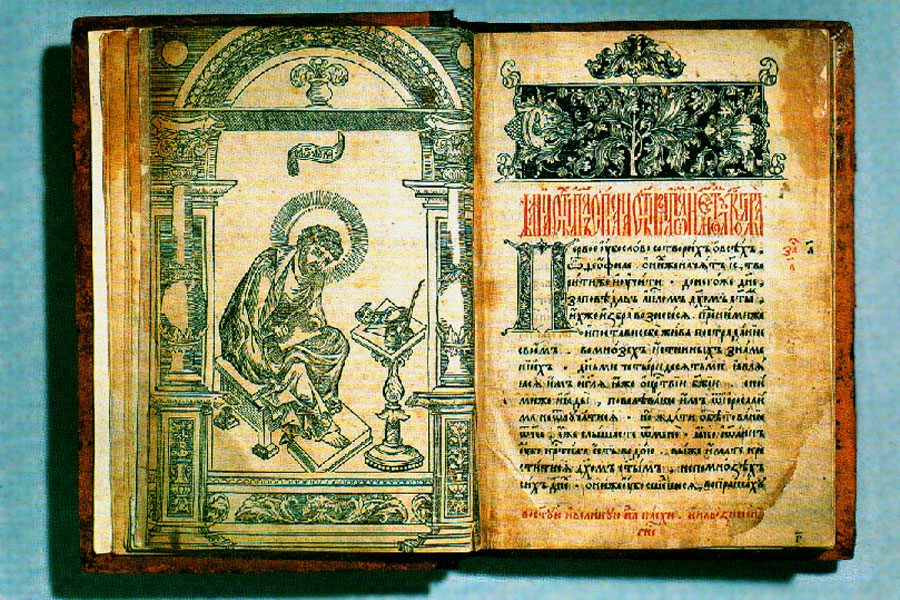 Первое ѹбо слово сотворихъ ѡ всѣхъ ,
ѽ деѡфиле . ѡ нихже начатъ і҃с , тво
рити же и ѹчити . до негоже дн҃е ,
заповѣдавъ апⷭ҇ломъ дх҃омъ ст҃ымъ ,
ихже избра вознесесѧ . пред нимиже
и постави себе жива по страданїи
своемъ . во мнозѣхъ истинныхъ знаме
нїихъ . дньми четыридесѧтьми ꙗвлѧ
ѧсѧ имъ и гл҃ѧ , ꙗже ѡ црⷭ҇твїи бж҃їи . с ни
миже и ꙗды , повелѣваше имъ ѿ їерⷭ҇али
ма не ѿлучатисѧ . но ждати обѣтованїѧ
ѿч҃а . еже слышасте ѿ мене . ꙗко іѡаннъ
ѹбо крⷭ҇тилъ есть водою . вы же имате кре
ститисѧ дх҃омъ ст҃ымъ . не по мнозѣхъ
сихъ дн҃ехъ . ѡни же ѹбо сшедшесѧ , вопрашаху